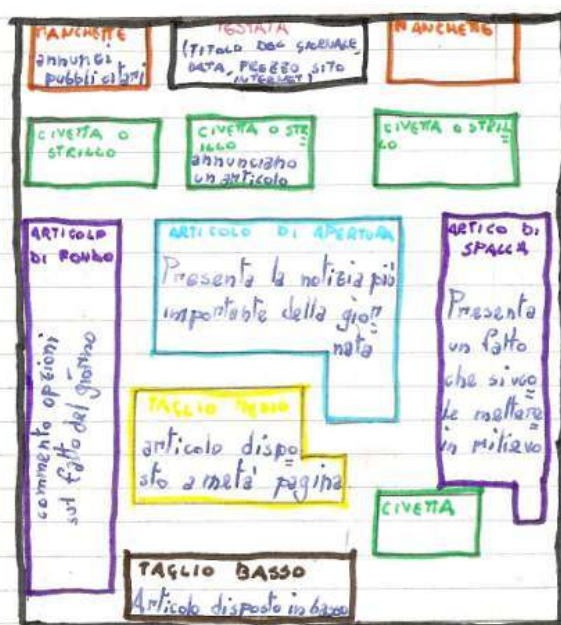 MANCHETTE
annunci
pubblicitari
TESTATA
(TITOLO DEL GIORNALE,
DATA, PREZZO SITO
INTERNET)
MANCHETTE
CIVETTA O
STRILLO
CIVETTA O STR
ILLO
annunciano
un articolo
CIVETTA O STRIL
LO
ARTICOLO
DI FONDO
commento opzioni
sul fatto del giorno
ARTICOLO DI APERTURA
Presenta la notizia più
importante della gior
nata
ARTICO DI
SPALLA
Presenta
un fatto
che si vuo
le mettere
in rilievo
TAGLIO MEDIO
articolo dispo
sto a metà pagina
CIVETTA
TAGLIO BASSO
Articolo disposto in basso